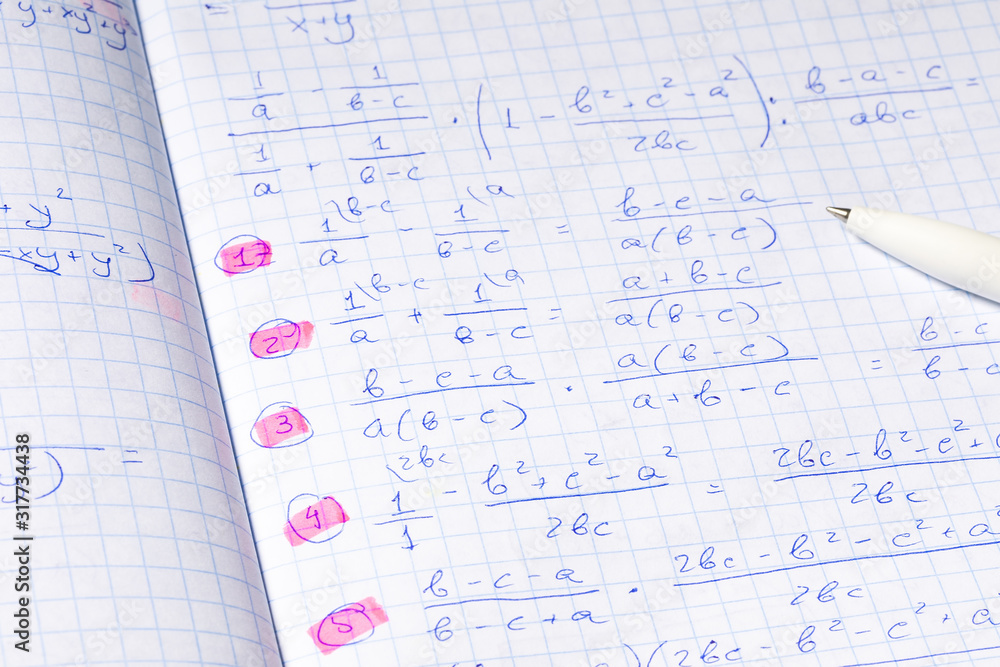 y+xy²+y²
= / x+y
+ y² / -xy+y²)
y) =
(1/a - 1/(b-c)) / (1/a + 1/(b-c)) · (1 - (b²+c²-a²)/2bc) : (b-a-c)/abc =
1) 1\b-c / a - 1\a / b-c = (b-c-a) / a(b-c)
2) 1\b-c / a + 1\a / b-c = (a+b-c) / a(b-c)
3 (b-c-a) / a(b-c) · a(b-c) / (a+b-c) = b-c / b-c
4 1\2bc / 1 - (b²+c²-a²) / 2bc = 2bc-b²-c²+ / 2bc
5 (b-c-a) / (b-c+a) · 2bc-b²-c²+a² / 2bc
)(2bc-b²-c²+a
Adobe Stock | #317734438